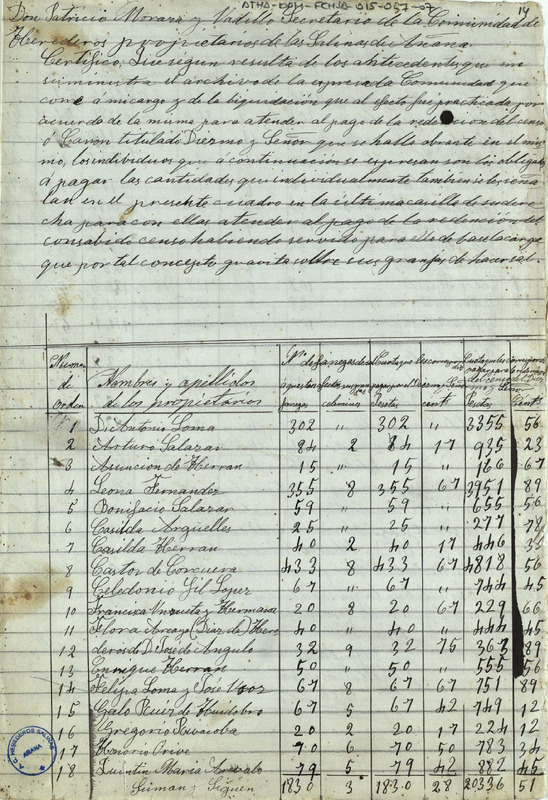 ATHA-DAH-FCHSA-015-057-07
14
Don Patricio Morazа y Vadillo Secretario de la Comunidad de
Herederos propietarios de las Salinas de Añana.
Certifico: Que segun resulta de los antecedentes que en
suministra el archivo de la expresada Comunidad que
corre á mi cargo y de la liquidacion que al efecto fué practicada por
acuerdo de la misma para atender al pago de la redencion del censo
ó Canon titulado Diezmo y Señor que se halla obrante en el mis
mo, los individuos que á continuacion se expresan son los obligados
á pagar las cantidades que individualmente tambien se les señа
lan en el presente cuadro en la ultima casilla de su dere
cha para con ellas atender al pago de la redencion del
consabido censo habiendo servido para ello de base la carga
que por tal concepto gravita sobre sus granjas de hacer sal.
Numo de orden
Nombres y apellidos de los propietarios
No de fanegas de sal
fanegas celemines Pesetas cent. Pesetas Cents
1 D. Antonio Loma 302 " 302 " 3355 56
2 Arturo Salazar 84 2 84 17 935 23
3 Asuncion de Herran 15 " 15 " 166 67
4 Leona Fernandez 355 8 355 67 3951 89
5 Bonifacio Salazar 59 " 59 " 655 56
6 Casilda Argüelles 25 " 25 " 277 78
7 Casilda Herran 40 2 40 17 446
8 Castor de Corcuera 433 8 433 67 4818 56
9 Celedonio Gil Lopez 67 " 67 " 744 45
10 Francisca Urquieta y Hermana 20 8 20 67 229 66
11 Flora Arcayo (Diaz de) Here 40 " 40 " 444 45
12 deros de D. José de Angulo 32 9 32 75 363 89
13 Enrique Herran 50 " 50 " 555 56
14 Felipa Loma y José 67 8 67 67 751 89
15 Galo Ruiz de Huidobro 67 5 67 42 749 12
16 Gregorio 20 2 20 17 224 12
17 Honorio Orive 70 6 70 50 783 34
18 Quintin Maria 79 5 79 42 882 45
Suman y siguen 1830 3 1830 28 20336 51
A.C. HEREDEROS SALINOS
AÑANA